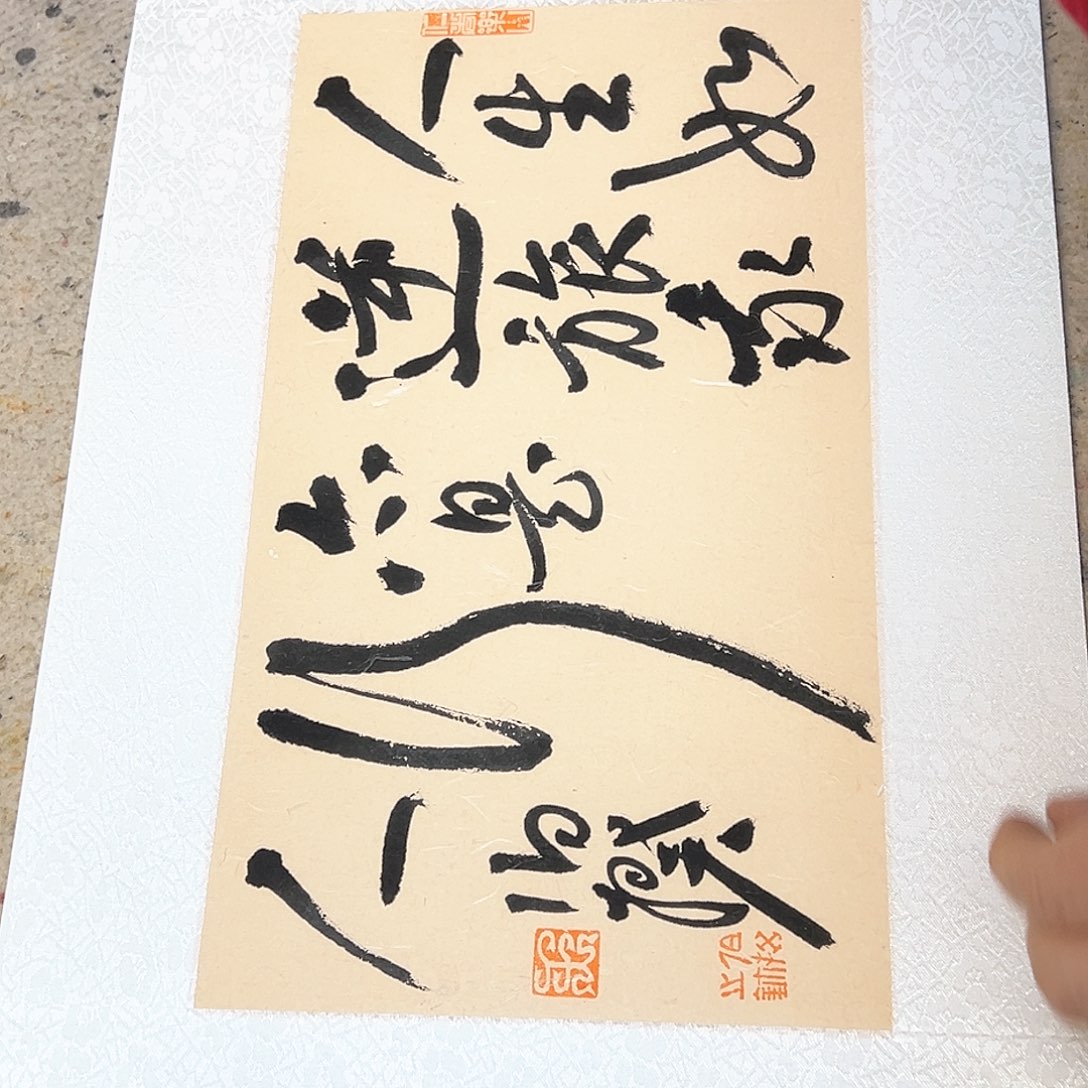 人生如
逆旅我
亦是
行
人